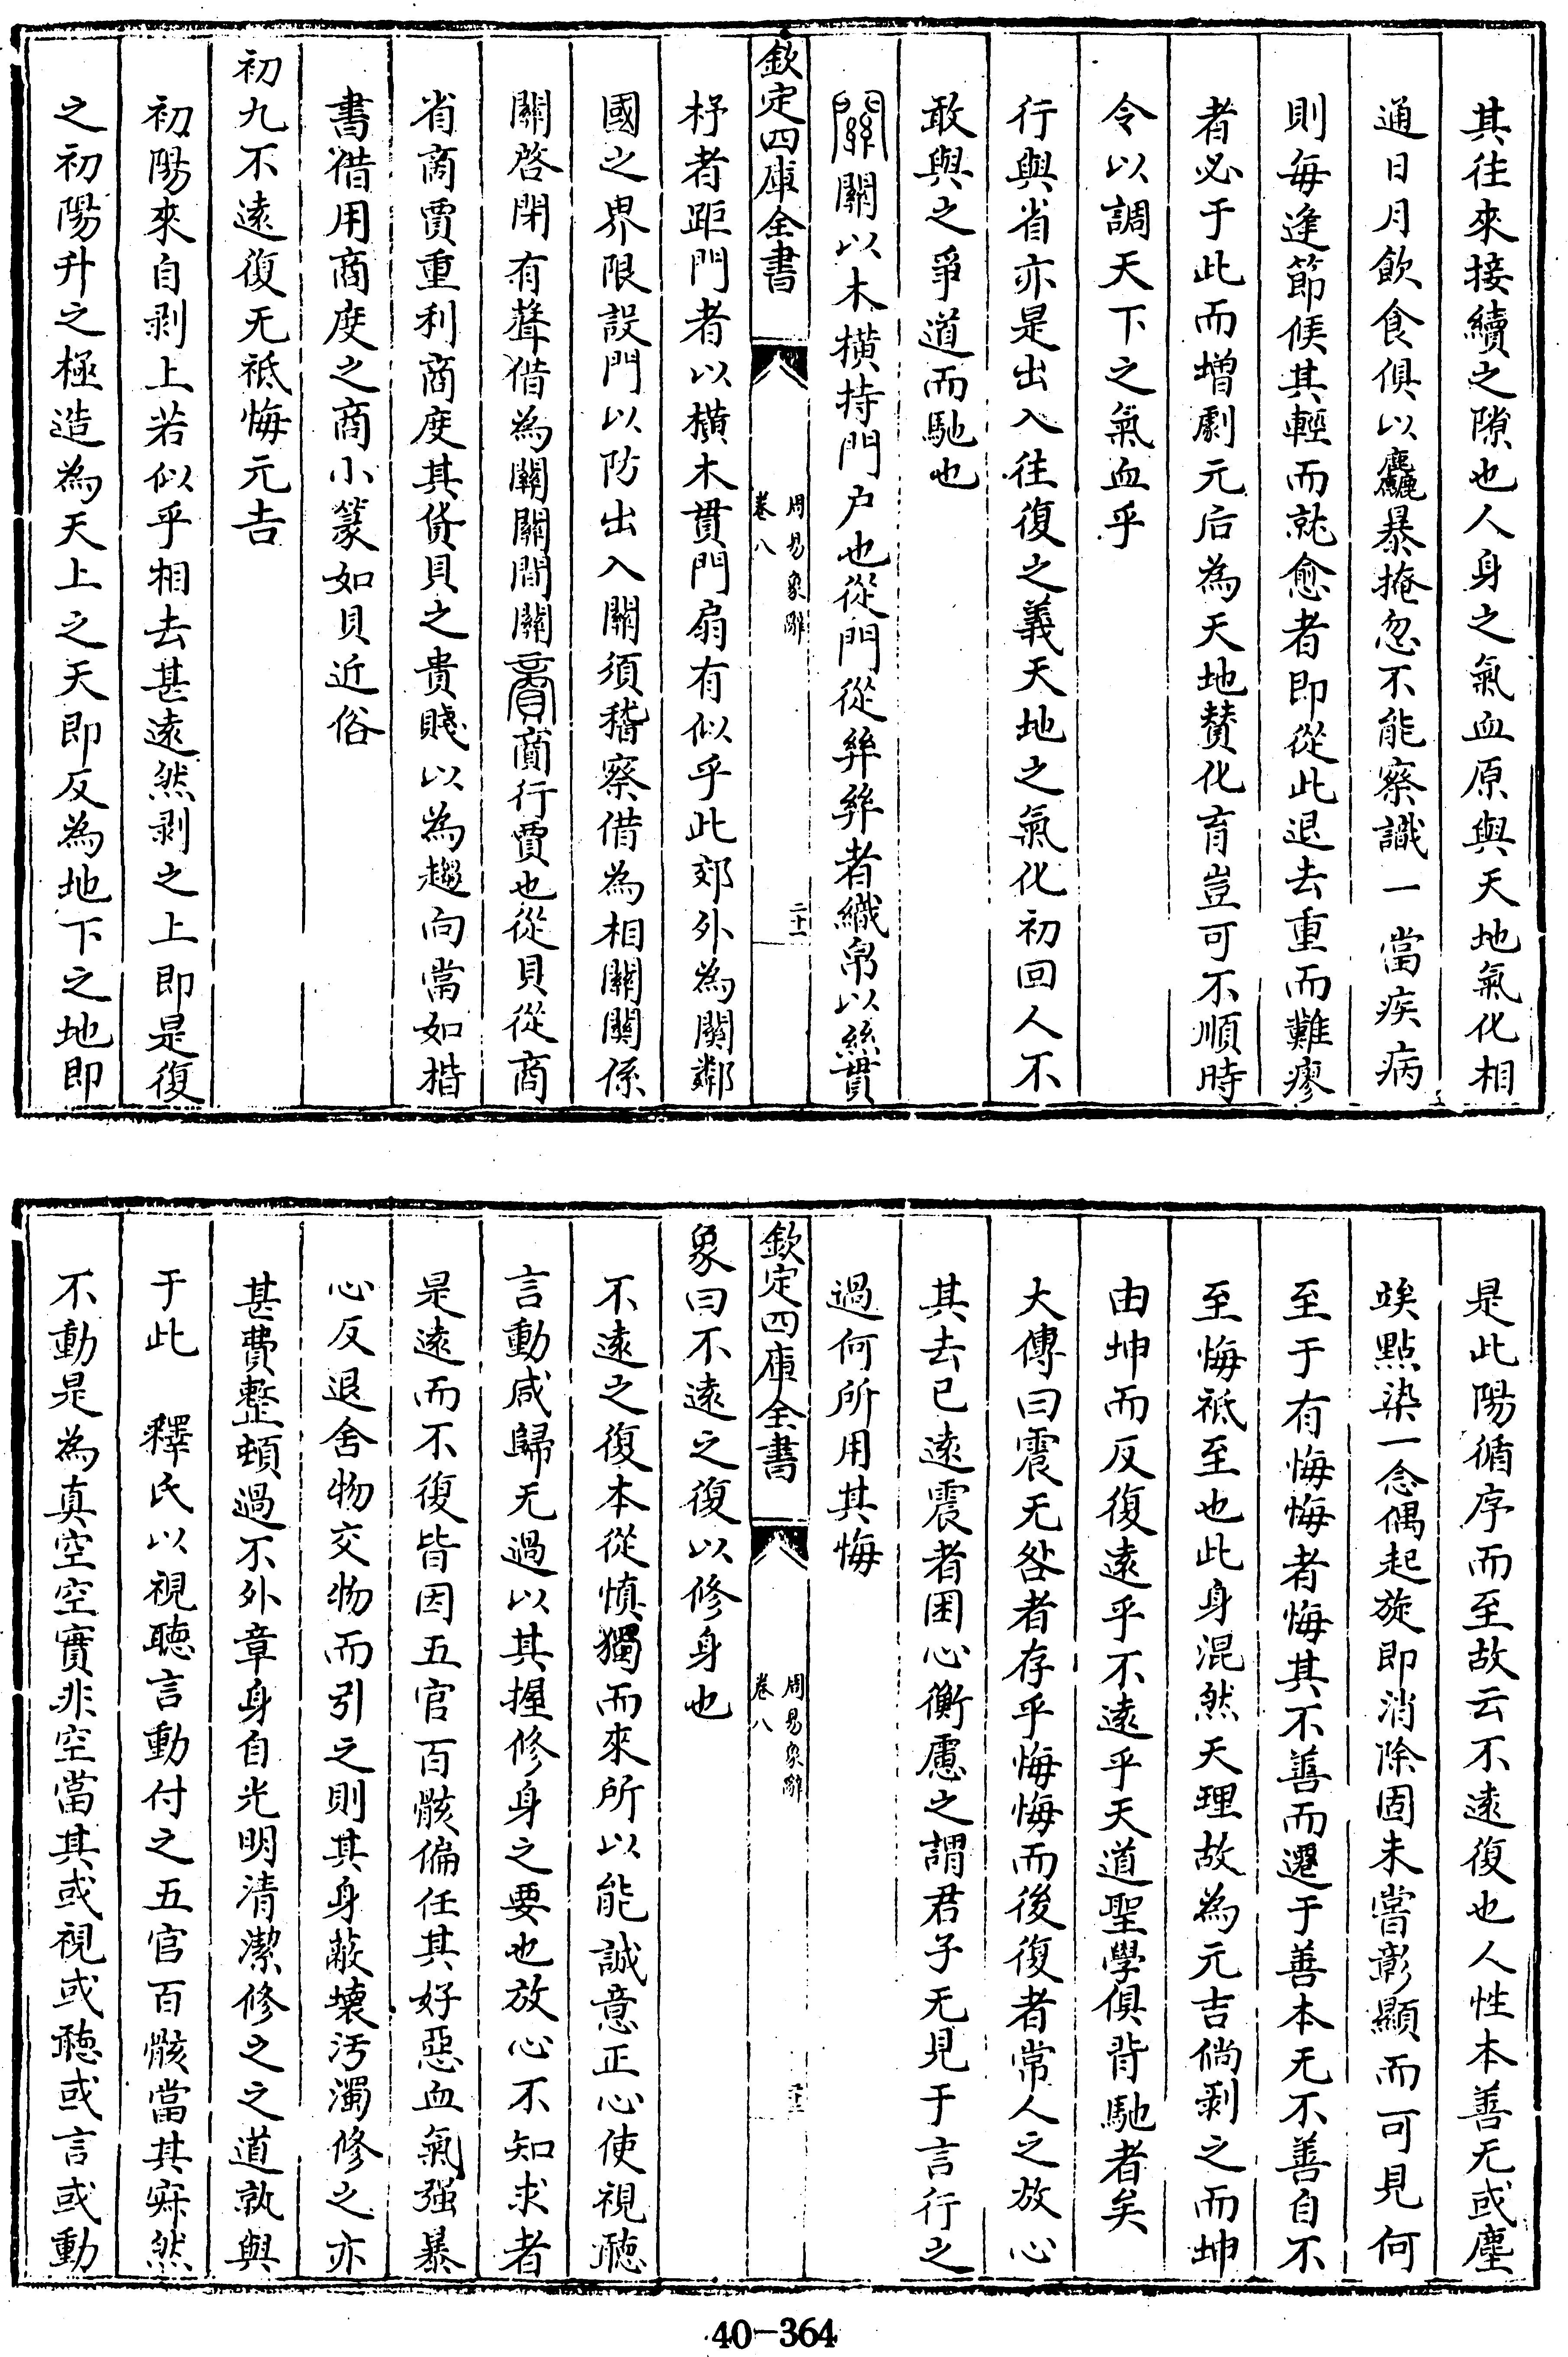 其往來接續之隙也人身之氣血原與天地氣化相
通日月飲食俱以麤暴掩忽不能察識一當疾病
則每逢節候其輕而就愈者即從此退去重而難瘳
者必于此而增劇元后為天地贊化育豈可不順時
令以調天下之氣血乎
行與省亦是出入往復之義天地之氣化初回人不
敢與之爭道而馳也
關以木橫持門户也從門從𢇇𢇇者織帛以絲貫
欽定四庫全書
周易象辭
卷八
二十一
杼者距門者以橫木貫門扇有似乎此郊外為關鄰
國之界限設門以防出入關須稽察借為相關關係
關啓閉有聲借為關關間關𧶜行賈也從貝從商
省商賈重利商度其貨貝之貴賤以為趨向當如楷
書借用商度之商小篆如貝近俗
初九不遠復无祗悔元吉
初陽來自剥上若似乎相去甚遠然剥之上即是復
之初陽升之極造為天上之天即反為地下之地即
是此陽循序而至故云不遠復也人性本善无或塵
埃點染一念偶起旋即消除固未嘗彰顯而可見何
至于有悔悔者悔其不善而遷于善本无不善自不
至悔祗至也此身混然天理故為元吉倘剥之而坤
由坤而反復遠乎不遠乎天道聖學俱背馳者矣
大傳曰震无咎者存乎悔悔而後復者常人之放心
其去已遠震者困心衡慮之謂君子无見于言行之
過何所用其悔
欽定四庫全書
周易象辭
卷八
二十二
象曰不遠之復以修身也
不遠之復本從慎獨而來所以能誠意正心使視聽
言動咸歸无過以其握修身之要也放心不知求者
是遠而不復皆因五官百骸偏任其好惡血氣强暴
心反退舍物交物而引之則其身蔽壞汚濁修之亦
甚費整頓過不外章身自光明清潔修之之道孰與
于此　釋氏以視聽言動付之五官百骸當其寂然
不動是為真空空實非空當其或視或聽或言或動
40-364